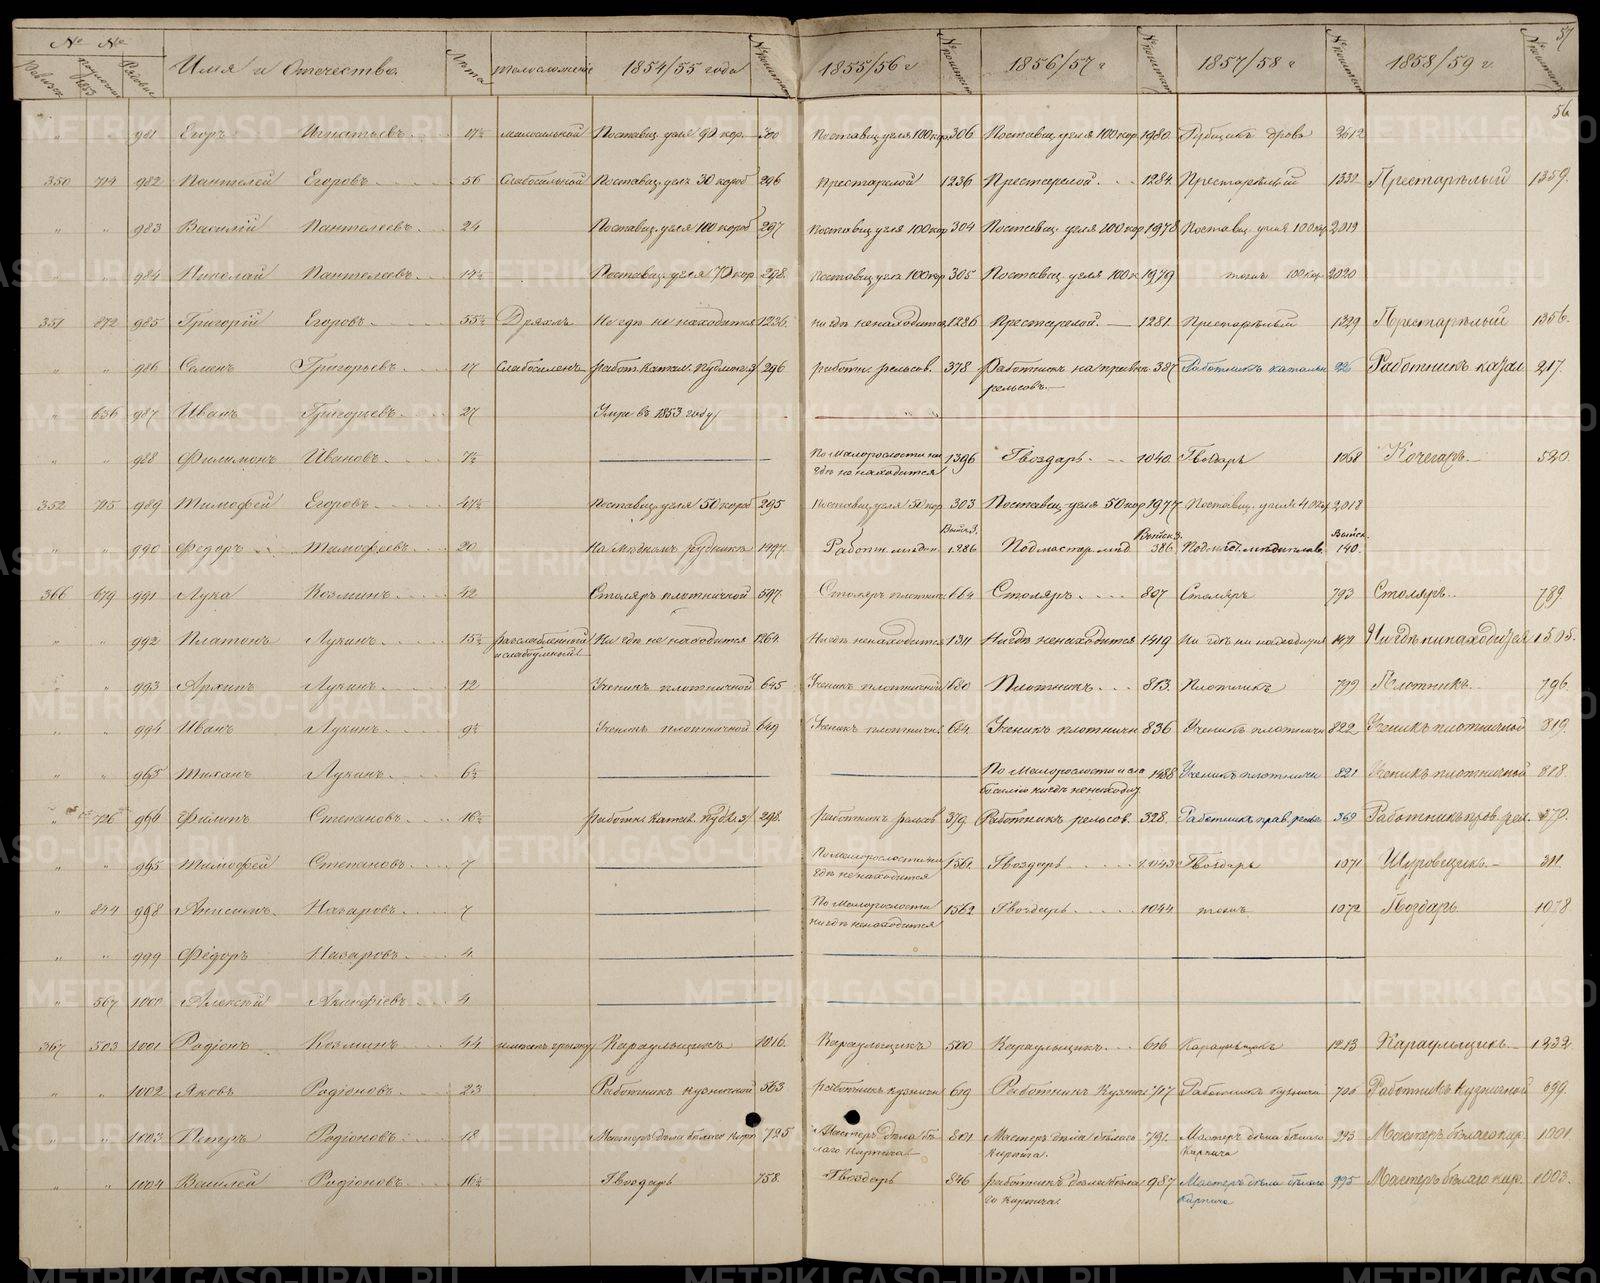 57
№ № Имя и Отечество. Лѣта тѣлосложеніе 1854/55 года 1855/56 г 1856/57 г 1857/58 г 1858/59 г.
56
" " 981 Егоръ Игнатьевъ 17½ малосильной Поставщ. угля 90 кор. 300 Поставщ угля 100 кор 306 Поставщ. угля 100 кор. 1980 Рубщикъ дровъ 2612
350 714 982 Пантелей Егоровъ 56 Слабосильной Поставщ. угля 30 короб 296 престарелой 1236 Престарелой. 1284 Престарѣлый 1332 Престарѣлый 1359.
" " 983 Василій Пантелеевъ 24 Поставщ. угля 100 короб 297 поставщ угля 100 кор 304 Поставщ. угля 200 кор 1978 Поставщ. угля 100 кор 2019
" " 984 Николай Пантелеевъ 14½ Поставщ. угля 70 кор 298. поставщ угля 100 кор 305 Поставщ. угля 100 к 1979 тожъ 100 кор 2020
351 872 985 Григорій Егоровъ 55½ Дряхлъ Нигдѣ не находится 1236 нигдѣ ненаходится 1286 Престарелой. 1281 Престарѣлый 1329 Престарѣлый 1356.
" " 986 Семенъ Григорьевъ 17 Слабосиленъ работ. катал. 296 работн. рельсов. 378 Работникъ на правкѣ 387 Работникъ катальн 226 Работникъ катал 217.
рельсовъ.
" 656 987 Иванъ Григорьевъ 27 Умре въ 1853 году
" " 988 Филимонъ Ивановъ 7½ По малорослости ни 1396 Гвоздарь. 1040 Гвоздарь 1068 Кочегаръ 520.
гдѣ не находится
352 715 989 Тимофей Егоровъ 47½ Поставщ. угля 50 короб 295 Поставщ угля 50 кор 303 Поставщ. угля 50 кор 1977 Поставщ. угля 40 кор 2018
" " 990 Федоръ Тимофеевъ 20 На мѣдномъ рудникѣ 1497 Работн. мѣдн. 1286 Подмастер. мѣд 386 Подмаст. мѣдиплав. 140.
366 679 991 Лука Козминъ 42 Столяръ плотничной 597 Столяръ плотнич 664 Столяръ. 807 Столяръ 793 Столяръ. 789.
" " 992 Платонъ Лукинъ 15½ разслабленный Нигдѣ не находится 1264 Нигдѣ ненаходится 1311 Нигдѣ ненаходится 1419 Ни гдѣ ни находится 1471 Нигдѣ ненаходится 1505.
и слабоумный
" " 993 Архипъ Лукинъ 12 Ученикъ плотничной 645 Ученикъ плотничной 680 Плотникъ. 813. Плотникъ 799 Плотникъ. 796.
" " 994 Иванъ Лукинъ 9½ Ученикъ плотничной 649 Ученикъ плотничн. 684 Ученикъ плотничн 836 Ученикъ плотничн 822 Ученикъ плотничный 819.
" " 995 Тиханъ Лукинъ 6½ По малорослости и сла 1388 Ученикъ плотничн 821 Ученикъ плотничной 818.
босилію нигдѣ ненаход.
" 726 996 Филипъ Степановъ 16½ 298. работникъ рельсов 379. Работникъ рельсов. 328. Работникъ прав. рельс 369 Работникъ прав. рел. 370.
" " 995 Тимофей Степановъ 7 По малорослости ни 1561 Гвоздарь 1043 Гвоздарь 1071 Шуровщикъ. 311.
гдѣ не находится
" 844 998 Анисимъ Назаровъ 7 По малорослости 1562 Гвоздарь 1044 тожъ 1072 Гвоздарь. 1078
нигдѣ ненаходится
" " 999 Федоръ Назаровъ 4
" 567 1000 Алексѣй 4
367 503 1001 Родіонъ Козминъ 44 имѣетъ грыжу Караульщикъ 1016. Караульщикъ 500 Караульщикъ. 616 Караульщикъ 1213 Караульщикъ. 1232
" " 1002 Яковъ Родіоновъ 23 Работникъ кузничной 563 работникъ кузничн 619 Работникъ Кузнич 717 Работникъ кузничн 706 Работникъ кузничной 699.
" " 1003 Петръ Родіоновъ 18 Мастеръ дѣла бѣлаго кирп 725 Мастеръ дѣла бѣ 801 Мастеръ дѣла бѣлаго 791. Мастеръ дѣла бѣлаго 993 Мастеръ бѣлаго кир. 1001
лаго кирпича Кирпича. кирпича
" " 1004 Василей Родіоновъ 16½ Гвоздарь 758 Гвоздарь 846 работникъ дѣла бѣла 987 Мастеръ дѣла бѣлаго 995 Мастеръ бѣлаго кир. 1003.
го кирпича. кирпича
METRIKI.GASO-URAL.RU